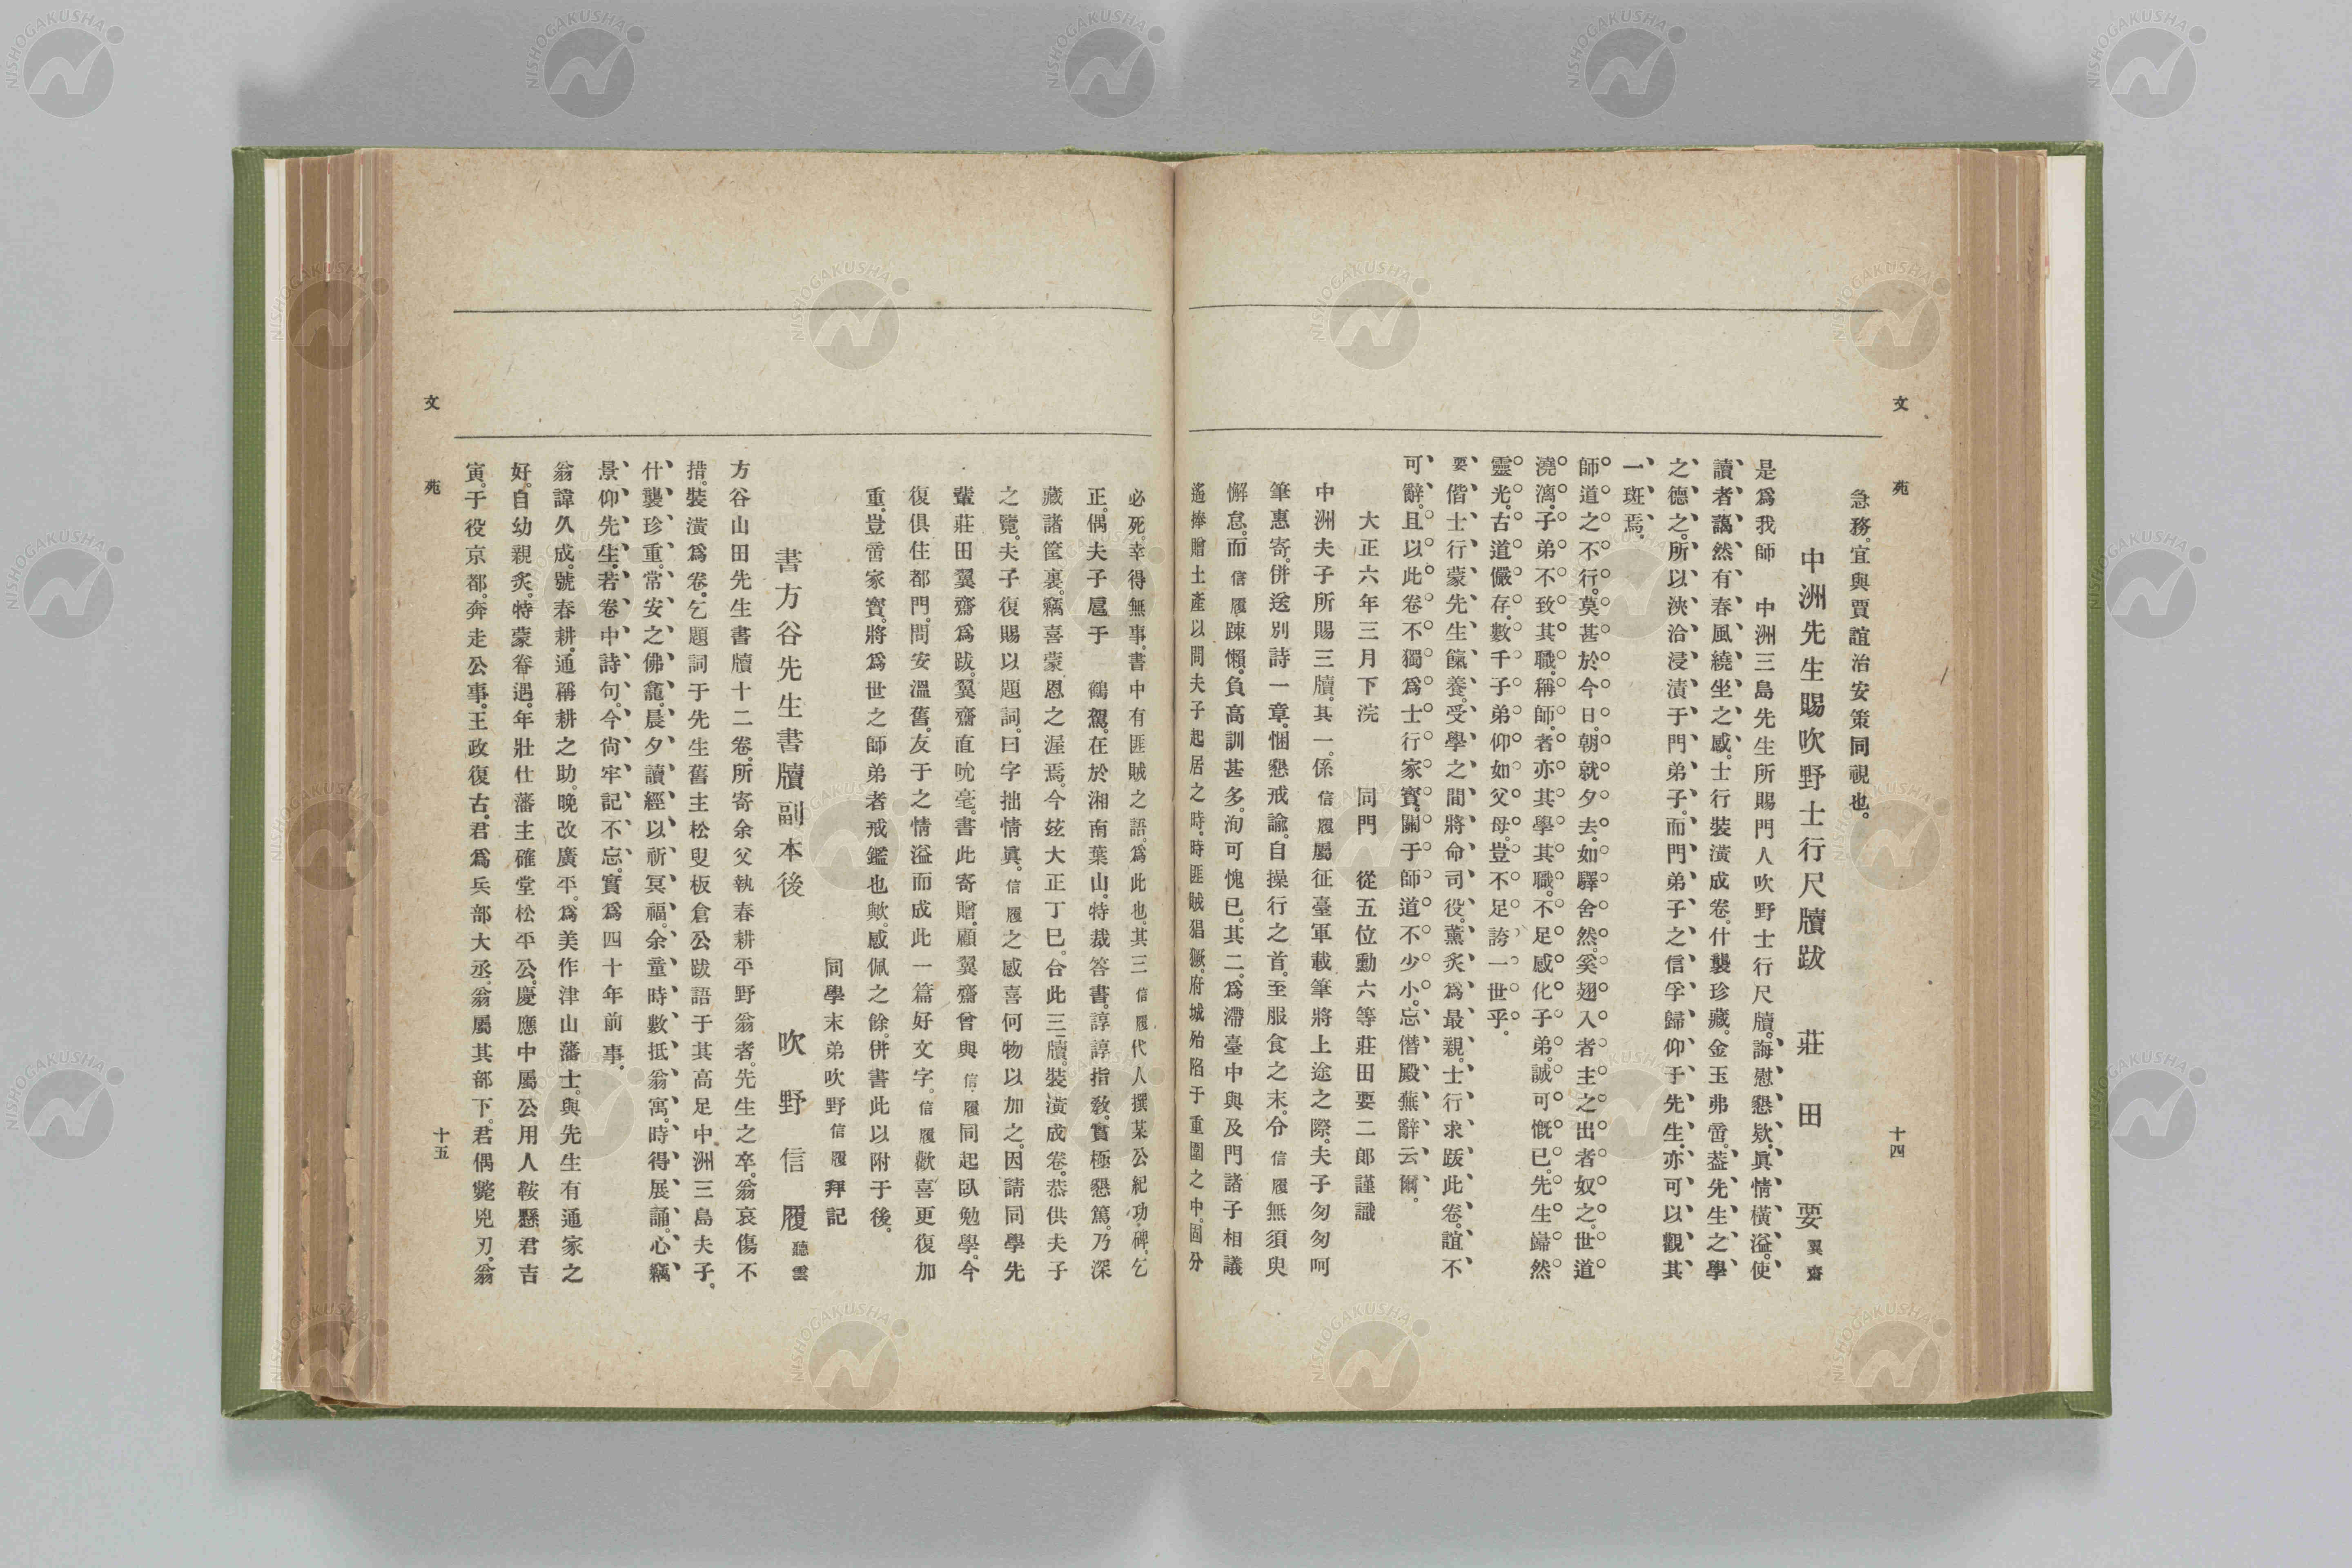 文苑
十四
急務。宜與賈誼治安策同視也。
中洲先生賜吹野士行尺牘跋 莊田要翼齋
是爲我師 中洲三島先生所賜門人吹野士行尺牘。誨慰懇欵。眞情橫溢。使
讀者藹然有春風繞坐之感。士行裝潢成卷。什襲珍藏。金玉弗啻。葢先生之學
之德之。所以浹洽浸漬于門弟子。而門弟子之信孚歸仰于先生。亦可以觀其
一斑焉。
師道之不行。莫甚於今日。朝就夕去。如驛舍然。奚翅入者主之出者奴之。世道
澆漓。子弟不致其職。稱師者亦其學其職。不足感化子弟。誠可慨已。先生巋然
靈光。古道儼存。數千子弟仰如父母。豈不足誇一世乎。
要偕士行蒙先生篋養。受學之間將命司役。薰炙爲最親。士行求跋此卷。誼不
可辭。且以此卷不獨爲士行家寶。關于師道不少小。忘僭殿蕪辭云爾。
大正六年三月下浣 同門 從五位勳六等莊田要二郎謹識
中洲夫子所賜三牘。其一。係信履屬征臺軍載筆將上途之際。夫子匆匆呵
筆惠寄。併送別詩一章。悃懇戒諭。自操行之首。至服食之末。今信履無須臾
懈怠。而信履踈懶。負高訓甚多。洵可愧已。其二。爲滯臺中與及門諸子相議
遙捧贈土產以問夫子起居之時。時匪賊猖獗。府城殆陷于重圍之中。固分
必死。幸得無事。書中有匪賊之語。爲此也。其三信履代人撰某公紀功碑。乞
正。偶夫子扈于 鶴駕。在於湘南葉山。特裁答書。諄諄指敎。實極懇篤。乃深
藏諸筐裏。竊喜蒙恩之渥焉。今玆大正丁巳。合此三牘。裝潢成卷。恭供夫子
之覽。夫子復賜以題詞。曰字拙情眞。信履之感喜何物以加之。因請同學先
輩莊田翼齋爲跋。翼齋直吮毫。書此寄贈。顧翼齋曾與信履同起臥勉學。今
復俱住都門。問安溫舊。友于之情溢而成此一篇好文字。信履歡喜更復加
重。豈啻家寶。將爲世之師弟者戒鑑也歟。感佩之餘。併書此以附于後。
同學末弟吹野信履拜記
書方谷先生書牘副本後 吹野信履聽雲
方谷山田先生書牘十二卷。所寄余父執春耕平野翁者。先生之卒。翁哀傷不
措。裝潢爲卷。乞題詞于先生舊主松叟板倉公跋語于其高足中洲三島夫子。
什襲珍重。常安之佛龕。晨夕讀經以祈冥福。余童時數抵翁寓。時得展誦。心竊
景仰先生。若卷中詩句。今尙牢記不忘。實爲四十年前事。
翁諱久成。號春耕。通稱耕之助。晚改廣平。爲美作津山藩士。與先生有通家之
好。自幼親炙。特蒙眷遇。年壯仕藩主確堂松平公。慶應中屬公用人鞍懸君吉
寅。于役京都。奔走公事。王政復古。君爲兵部大丞。翁屬其部下。君偶斃兇刃。翁
文苑
十五